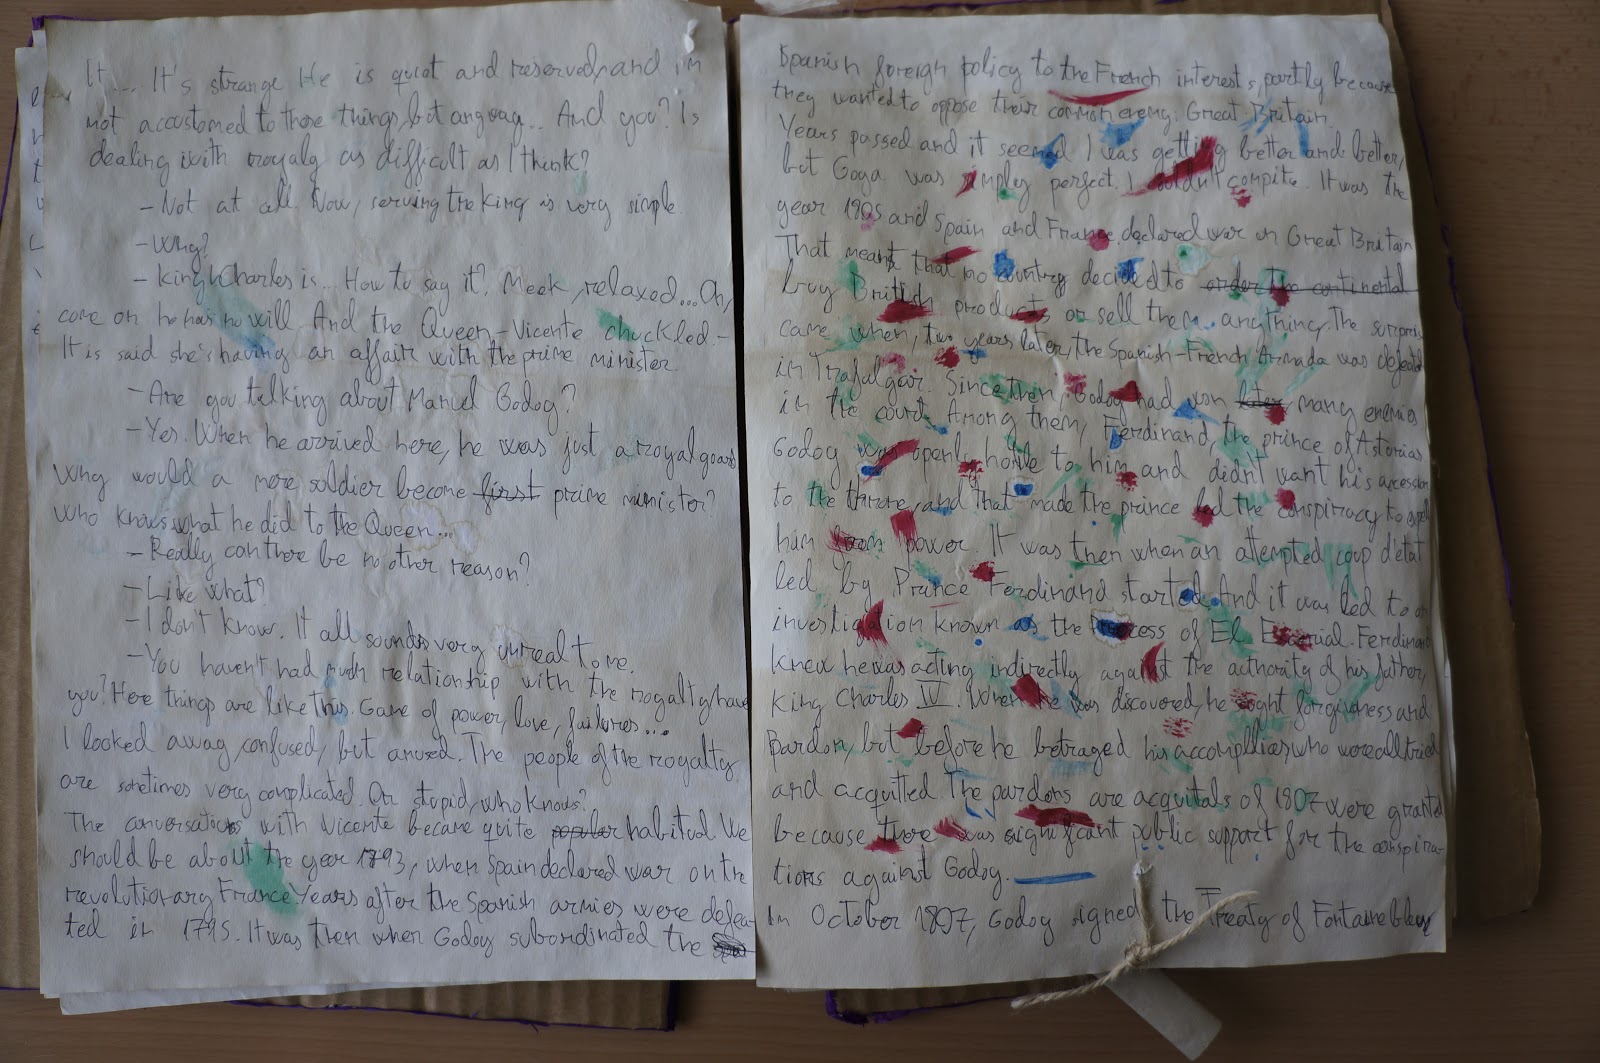 It... It's strange He is quiet and reserved, and I'm
not accustomed to those things, but anyway... And you? Is
dealing with royalty as difficult as I think?
- Not at all. Now, serving the king is very simple
- Why?
- King Charles is... How to say it? Meek, relaxed... Oh,
come on he has no will. And the Queen - Vicente chuckled -
It is said she's having an affair with the prime minister.
- Are you talking about Manuel Godoy?
- Yes. When he arrived here, he was just a royal guard
Why would a mere soldier become first prime minister?
Who knows what he did to the Queen...
- Really can there be no other reason?
- Like what?
- I don't know. It all sounds very unreal to me.
- You haven't had much relationship with the royalty, have
you? Here things are like this. Game of power, love, failures...
I looked away, confused, but amused. The people of the royalty
are sometimes very complicated. Or stupid, who knows?
The conversations with Vicente became quite popular habitual. We
should be about the year 1793, when Spain declared war on the
revolutionary France. Years after the Spanish armies were defea-
ted in 1795. It was then when Godoy subordinated the
Spanish foreign policy to the French interests, partly because
they wanted to oppose their common enemy: Great Britain.
Years passed and it seemed I was getting better and better,
but Goya was simply perfect. I couldn't compite. It was the
year 1805 and Spain and France declared war on Great Britain
That meant that no country decided to order the continental
buy British products or sell them anything. The surprise
came when, two years later, the Spanish-French Armada was defeated
in Trafalgar. Since then, Godoy had won later many enemies
in the court. Among them, Ferdinand, the prince of Astorias
Godoy was openly hostile to him and didn't want his accession
to the throne, and that made the prince led the conspiracy to expell
him from power. It was then when an attempted coup d'etat
led by Prince Ferdinand started. And it was led to an
investigation known as the Process of El Escorial. Ferdinand
knew he was acting indirectly against the authority of his father,
King Charles IV. When he was discovered, he sought forgiveness and
Pardon, but before he betrayed his accomplices, who were all tried
and acquitted. The pardons are acquitals of 1807 were granted
because there was significant public support for the conspira-
tions against Godoy.
In October 1807, Godoy signed the Treaty of Fontainebleau